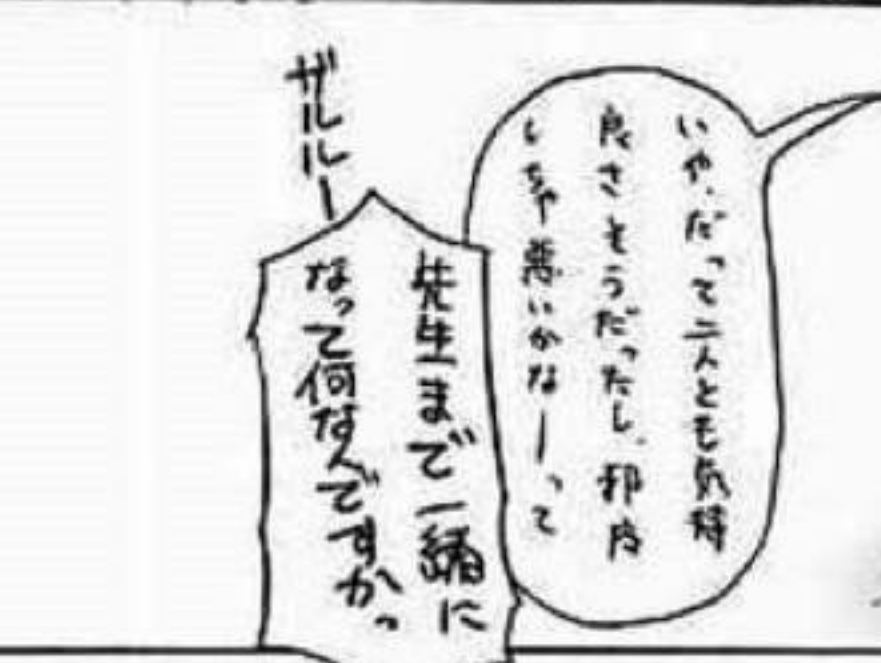 いや、だって二人とも気持
良さそうだったし、邪广
しちゃ悪いかなーって
先生まで一緒に
なって何なんですかっ
ザルルー